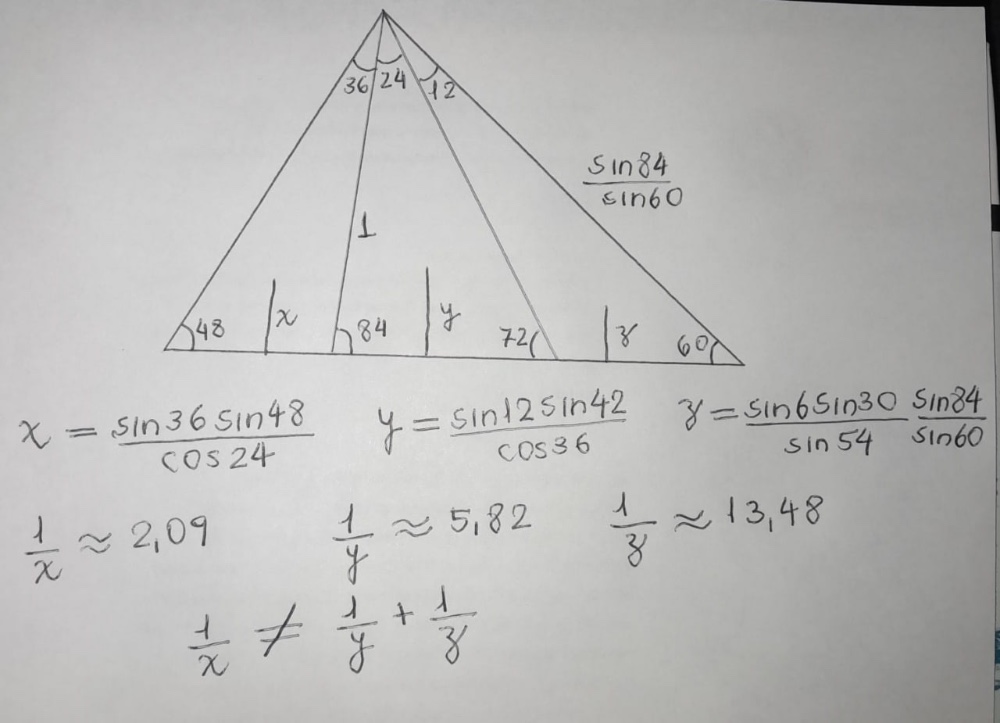 36 24 12
sin84
sin60
1
48 x 84 y 72 z 60
x = sin36 sin48 / cos24 y = sin12 sin42 / cos36 z = sin6 sin30 / sin54 sin84 / sin60
1/x ≈ 2,09 1/y ≈ 5,82 1/z ≈ 13,48
1/x ≠ 1/y + 1/z